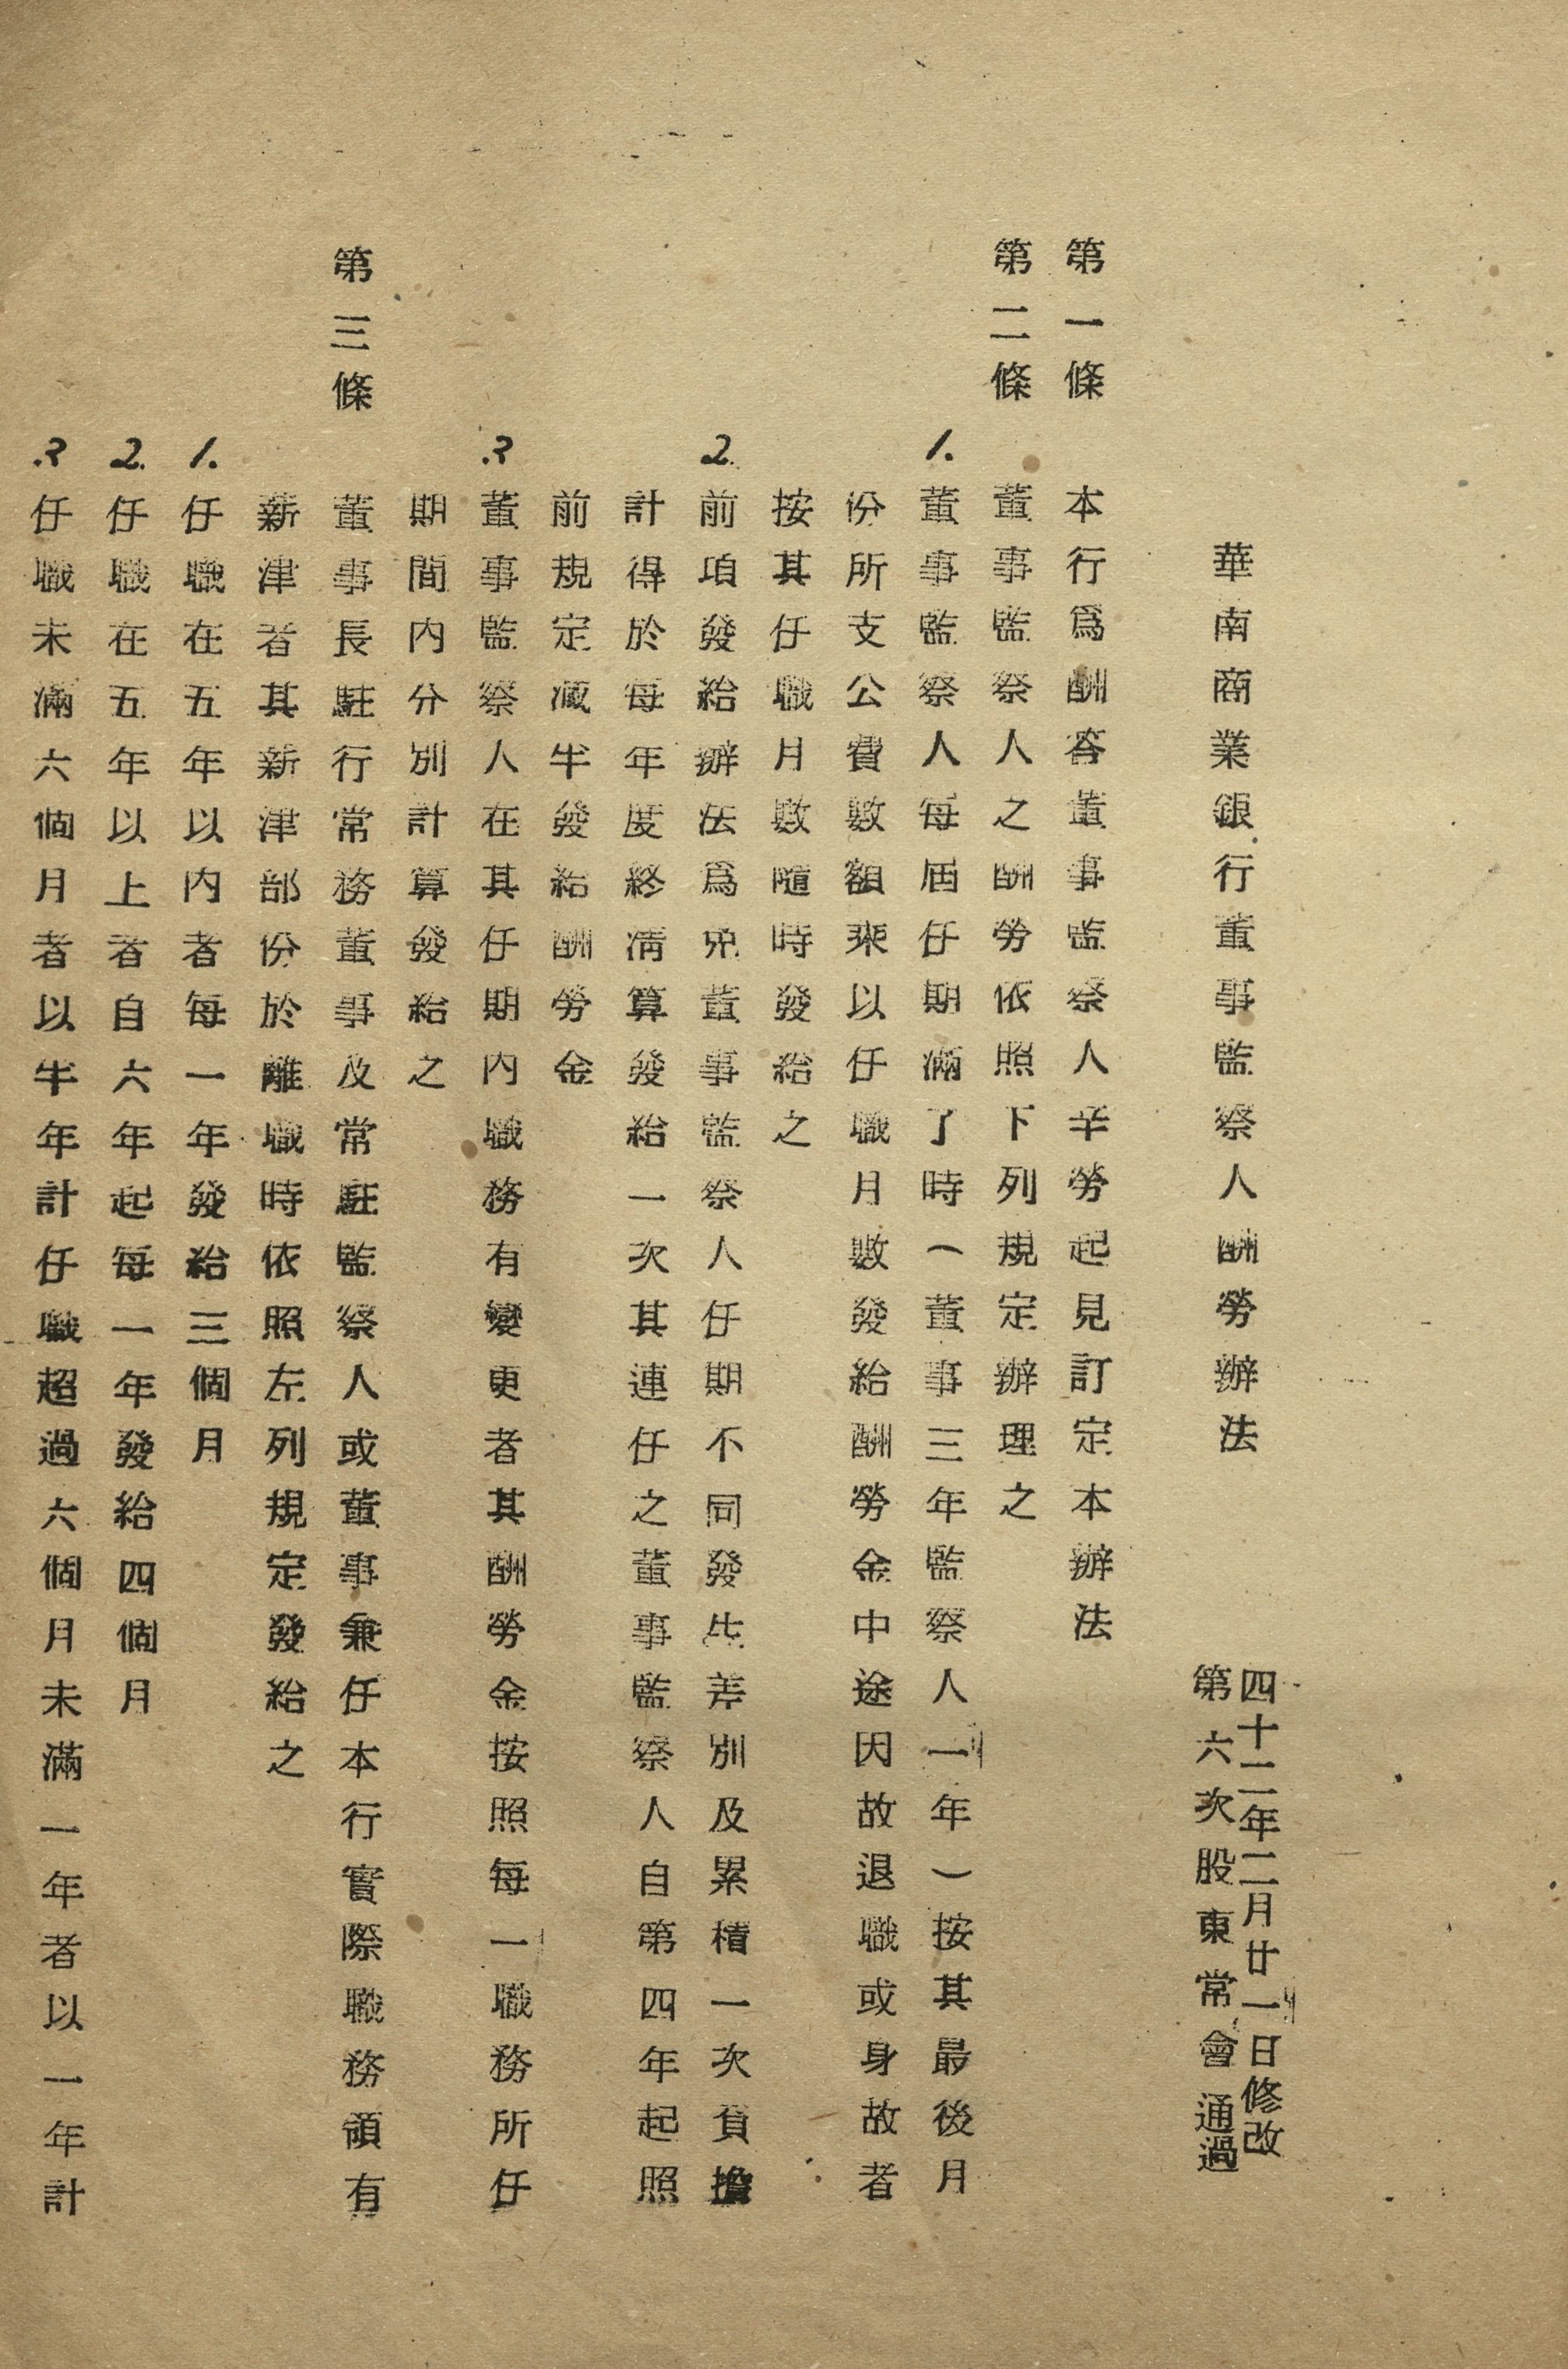 華南商業銀行董事監察人酬勞辦法
四十二年二月廿一日修改
第六次股東常會通過
第一條 本行爲酬答董事監察人辛勞起見訂定本辦法
第二條 董事監察人之酬勞依照下列規定辦理之
1. 董事監察人每屆仼期滿了時（董事三年監察人一年）按其最後月
份所支公費數額乘以仼職月數發給酬勞金中途因故退職或身故者
按其仼職月數隨時發給之
2. 前項發給辦法爲免董事監察人仼期不同發生差別及累積一次負擔
計得於每年度終淸算發給一次其連仼之董事監察人自第四年起照
前規定减半發給酬勞金
3. 董事監察人在其仼期內職務有變更者其酬勞金按照每一職務所仼
期間內分別計算發給之
第三條 董事長駐行常務董事及常駐監察人或董事兼仼本行實際職務領有
薪津者其薪津部份於離職時依照左列規定發給之
1. 仼職在五年以內者每一年發給三個月
2. 仼職在五年以上者自六年起每一年發給四個月
3. 仼職未滿六個月者以半年計仼職超過六個月未滿一年者以一年計